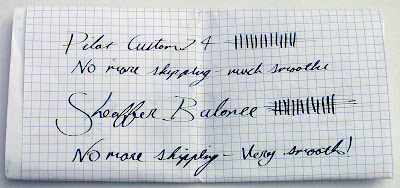 Pilot Custom 74
No more skipping - much smoother
Sheaffer Balance
No more skipping - Very smooth!